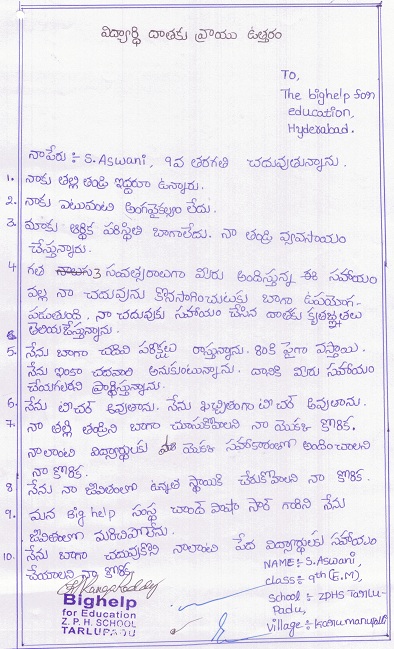 విద్యార్థి దాతకు వ్రాయు ఉత్తరం
To,
The bighelp for
education,
Hyderabad.
నాపేరు :- S. Aswani, 9వ తరగతి చదువుతున్నాను.
1. నాకు తల్లి తండ్రి ఇద్దరూ ఉన్నారు.
2. నాకు ఎటువంటి అంగవైకల్యం లేదు.
3. మాకు ఆర్థిక పరిస్థితి బాగాలేదు. నా తండ్రి వ్యవసాయం
చేస్తున్నారు.
4 గత 3 సంవత్సరాలుగా మీరు అందిస్తున్న ఈ సహాయం
వల్ల నా చదువును కొనసాగించుటకు బాగా ఉపయోగ-
పడుతుంది. నా చదువుకు సహాయం చేసిన దాతకు కృతజ్ఞతలు
తెలియజేస్తున్నాను.
5. నేను బాగా చదివి పరీక్షలు రాస్తున్నాను. 80కి పైగా వస్తాయి.
నేను ఇంకా చదవాలి అనుకుంటున్నాను. దానికి మీరు సహాయం
చేయగలరని ప్రార్థిస్తున్నాను.
6. నేను టీచర్ అవుతాను. నేను ఖచ్చితంగా టీచర్ అవుతాను.
7. నా తల్లి తండ్రిని బాగా చూసుకోవాలని నా యొక్క కోరిక.
నాలాంటి విద్యార్థులకు యొక్క సహాకారంలో అందించాలని
నా కోరిక.
8 నేను నా జీవితంలో ఉన్నత స్థాయికి చేరుకోవాలని నా కోరిక.
9. మన Big help సంస్థ చాంద్ పాషా సార్ గారిని నేను
జీవితంలో మరిచిపోలేను.
10. నేను బాగా చదువుకొని నాలాంటి పేద విద్యార్థులకు సహాయం
చేయాలని నా కోరిక.
NAME :- S. Aswani,
class :- 9th (E.M),
School :- ZPHS Tarlu-
Padu,
Village :- 
Bighelp
for Education
Z. P. H. SCHOOL
TARLUPADU